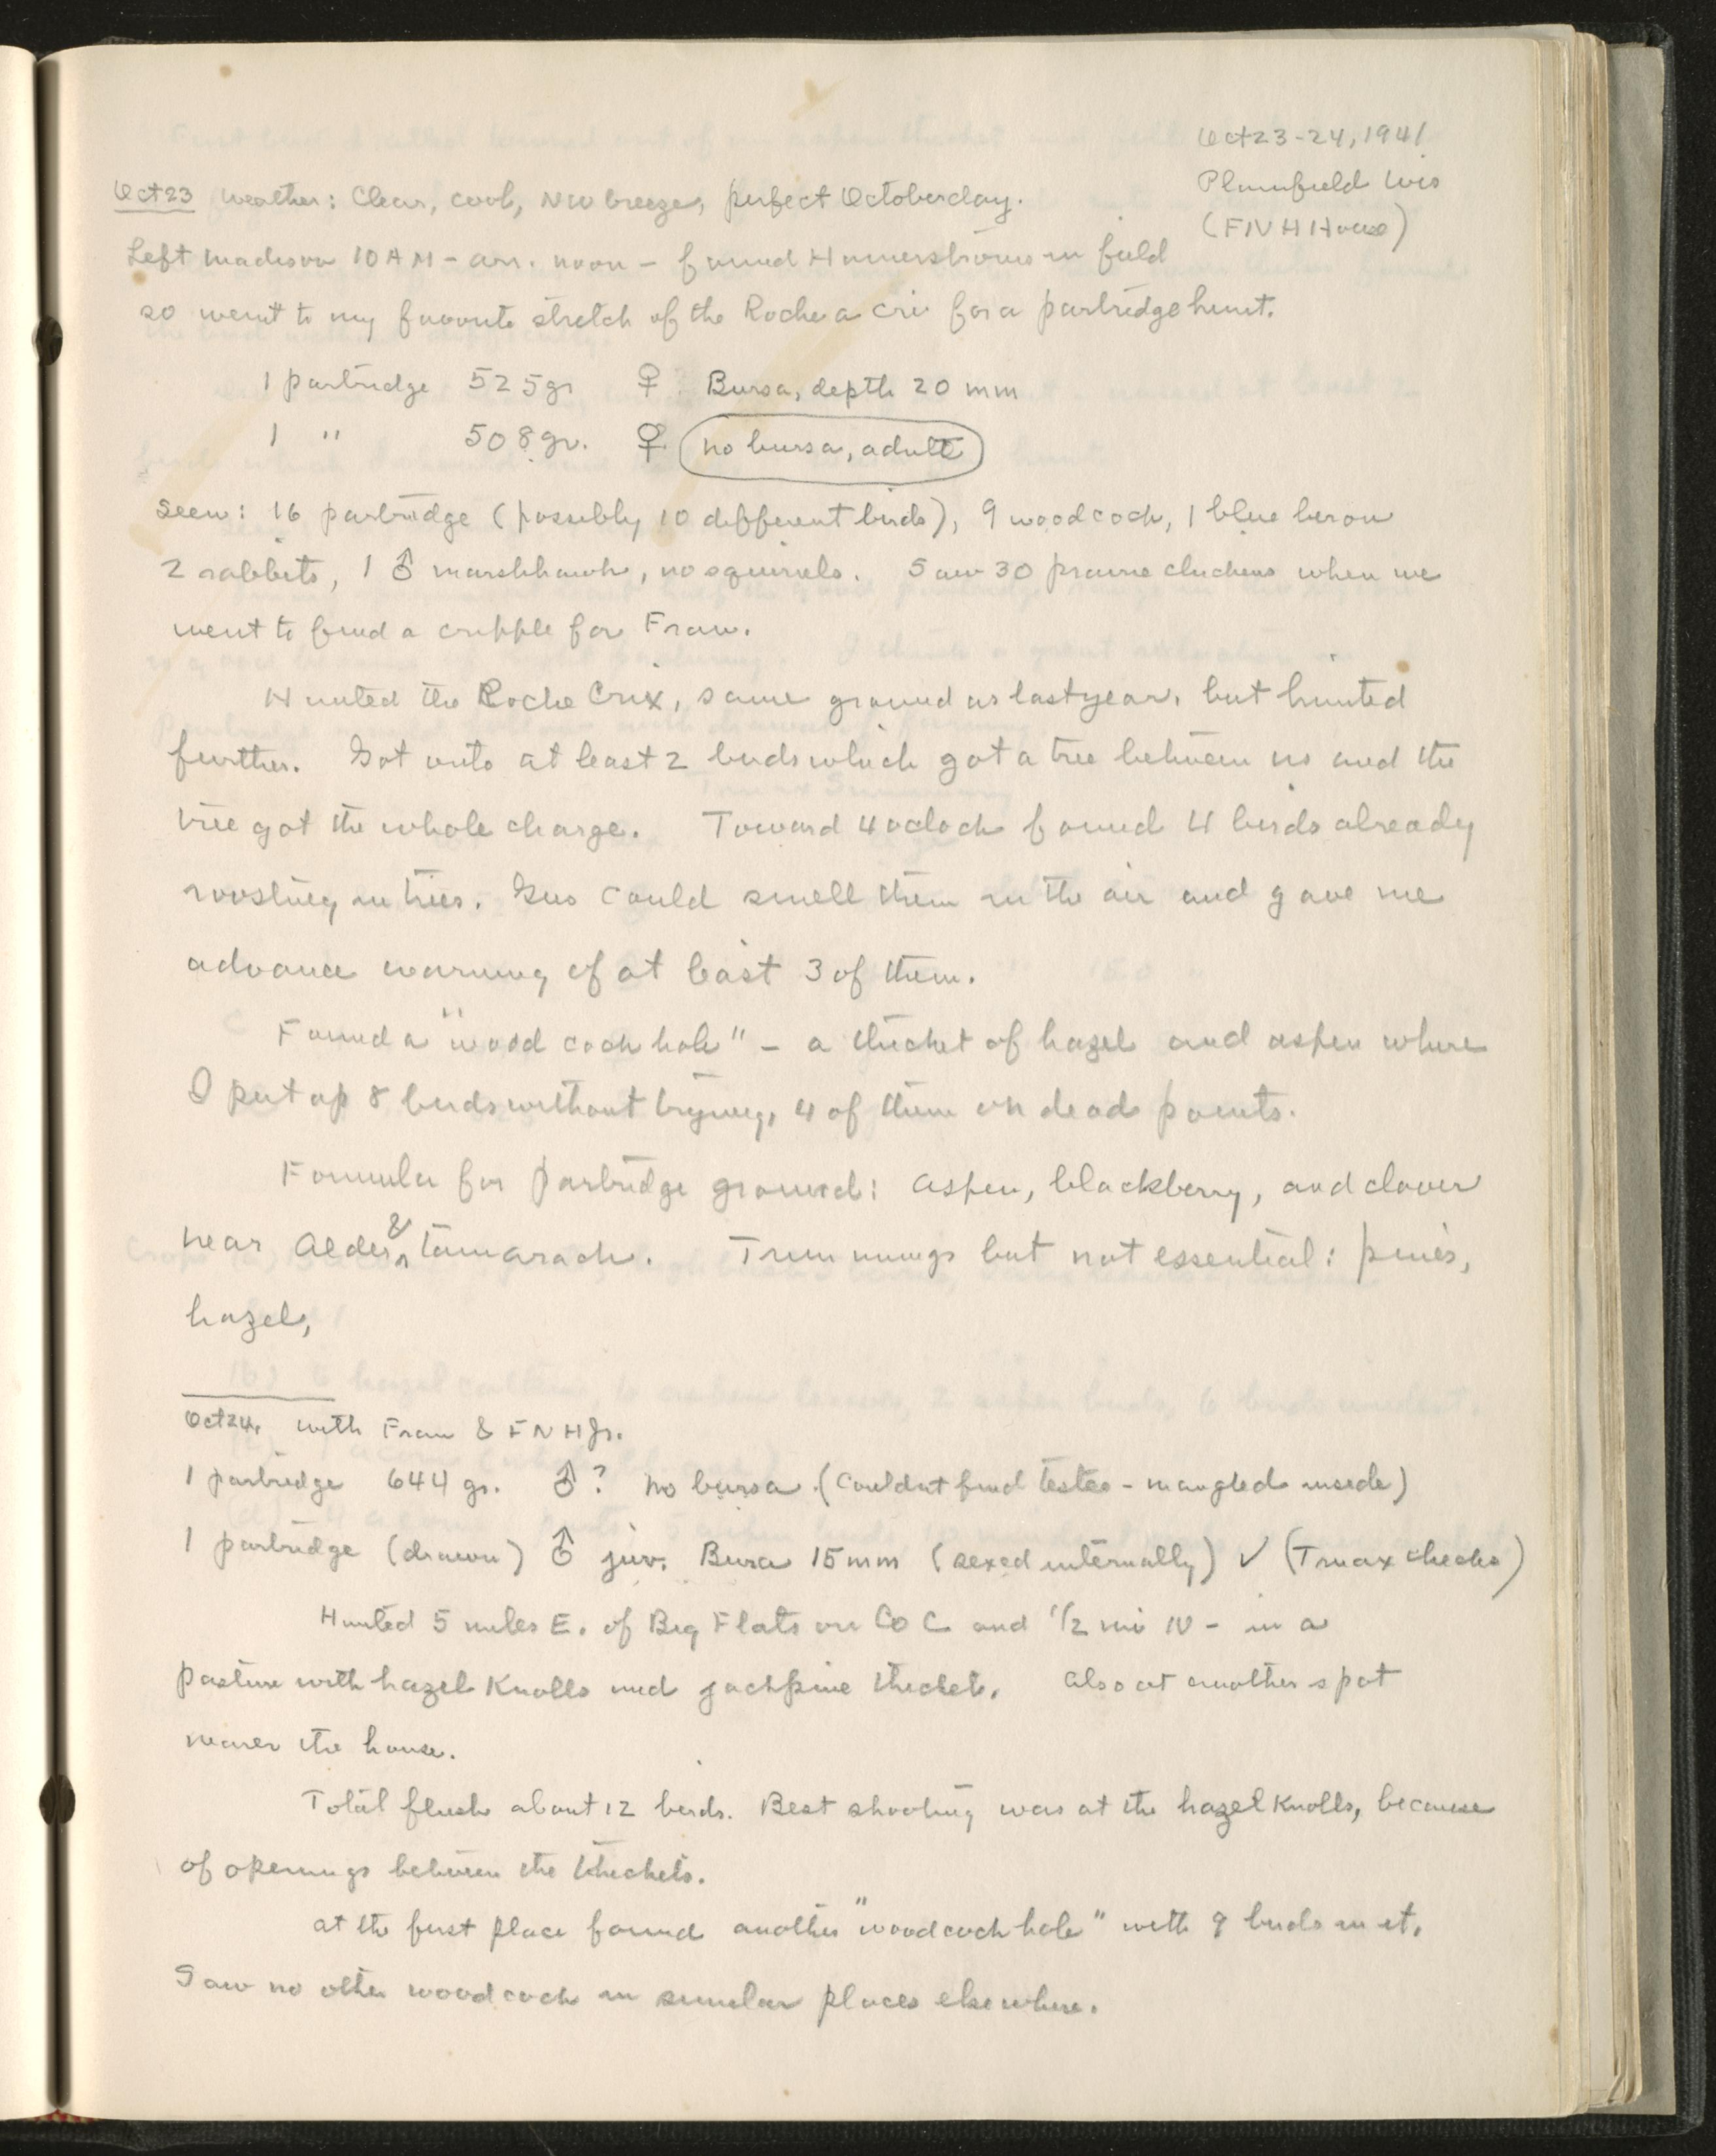 Oct 23-24, 1941
Plainfield Wis
(FNH House)
Oct 23 Weather: Clear, cool, NW breeze, perfect October day.
Left Madison 10 AM - arr. noon - found Hamerstroms in field
so went to my favorite stretch of the Roche a Cri for a partridge hunt.
1 partridge 525 gr ♀ Bursa, depth 20 mm
1 " 508 gr. ♀ no bursa, adult
Seen: 16 partridge (possibly 10 different birds), 9 woodcock, 1 blue heron
2 rabbits, 1 ♂ marshhawk, no squirrels. Saw 30 prairie chickens when we
went to find a cripple for Fran.
Hunted the Roche Crix, same ground as last year, but hunted
further. Got onto at least 2 birds which got a tree between us and the
tree got the whole charge. Toward 4 oclock found 4 birds already
roosting in trees. Gus could smell them in the air and gave me
advance warning of at least 3 of them.
Found a "woodcock hole" - a thicket of hazel and aspen where
I put up 8 birds without trying, 4 of them on dead points.
Formula for partridge ground: aspen, blackberry, and clover
near alder & tamarack. Trimmings but not essential: pines,
hazel,
Oct 24. with Fran & FNH Jr.
1 partridge 644 gr. ♂? no bursa. (Couldnt find testes - mangled inside)
1 partridge (drawn) ♂ juv. Bursa 15 mm (sexed internally) ✓ (Truax checks)
Hunted 5 miles E. of Big Flats on Co C and 1/2 mi N - in a
pasture with hazel knolls and jackpine thickets. Also at another spot
nearer the house.
Total flush about 12 birds. Best shooting was at the hazel knolls, because
of openings between the thickets.
At the first place found another "woodcock hole" with 9 birds in it.
Saw no other woodcock in similar places elsewhere.